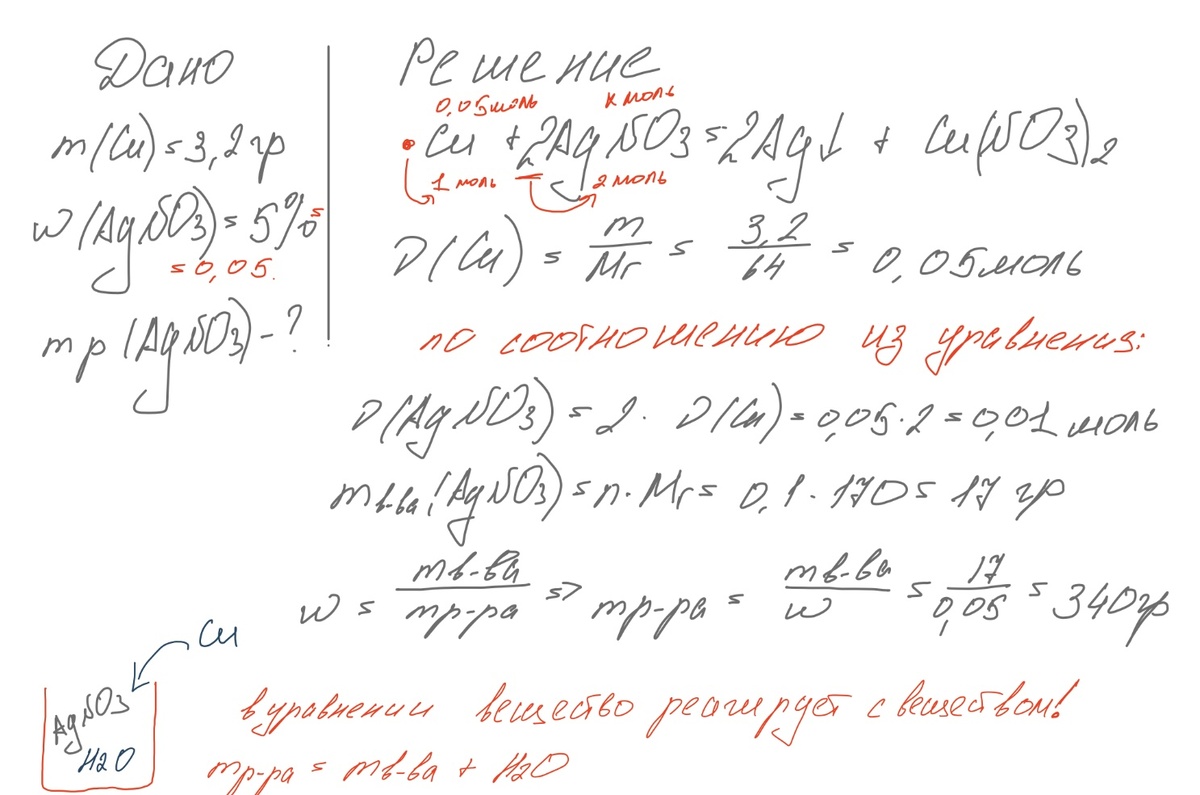 Дано
m(Cu) = 3,2 гр
w(AgNO3) = 5% =
= 0,05.
mр(AgNO3) - ?
Решение
0,05моль x моль
Cu + 2AgNO3 = 2Ag↓ + Cu(NO3)2
1 моль 2 моль
ν(Cu) = m/Mr = 3,2/64 = 0,05моль
по соотношению из уравнения:
ν(AgNO3) = 2 · ν(Cu) = 0,05 · 2 = 0,01 моль
mв-ва(AgNO3) = n · Mr = 0,1 · 170 = 17 гр
w = mв-ва/mр-ра => mр-ра = mв-ва/w = 17/0,05 = 340гр
Cu
AgNO3
H2O
в уравнении вещество реагирует с веществом!
mр-ра = mв-ва + H2O